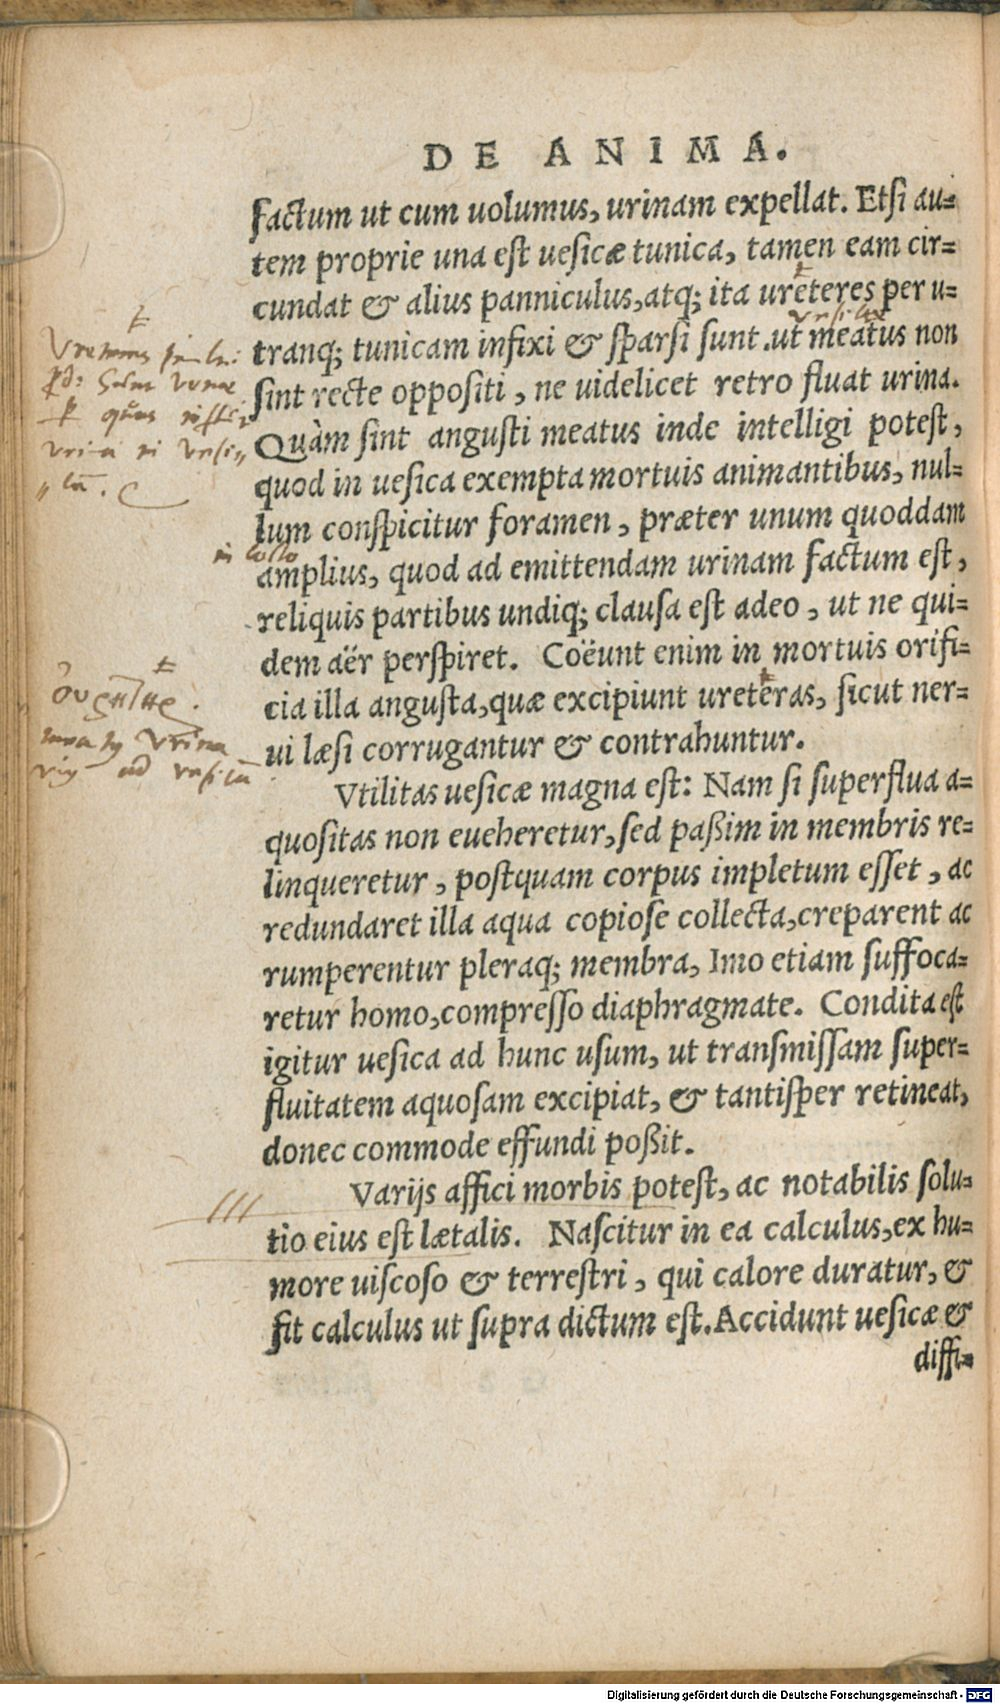 DE ANIMA.
factum ut cum uolumus, urinam expellat. Etsi au=
tem proprie una est uesicæ tunica, tamen eam cir=
cundat & alius panniculus, atq; ita ureteres per u=
tranq; tunicam infixi & sparsi sunt. ut meatus non
sint recte oppositi, ne uidelicet retro fluat urina.
Quàm sint angusti meatus inde intelligi potest,
quod in uesica exempta mortuis animantibus, nul=
lum conspicitur foramen, præter unum quoddam
in collo
amplius, quod ad emittendam urinam factum est,
reliquis partibus undiq; clausa est adeo, ut ne qui=
dem aër perspiret. Coëunt enim in mortuis orifi=
cia illa angusta, quæ excipiunt ureteras, sicut ner=
ui læsi corrugantur & contrahuntur.
Vtilitas uesicæ magna est: Nam si superflua a=
quositas non eueheretur, sed paßim in membris re=
linqueretur, postquam corpus impletum esset, ac
redundaret illa aqua copiose collecta, creparent ac
rumperentur pleraq; membra, Imo etiam suffoca=
retur homo, compresso diaphragmate. Condita est
igitur uesica ad hunc usum, ut transmissam super=
fluitatem aquosam excipiat, & tantisper retineat,
donec commode effundi poßit.
Varijs affici morbis potest, ac notabilis solu=
tio eius est lætalis. Nascitur in ea calculus, ex hu=
more uiscoso & terrestri, qui calore duratur, &
fit calculus ut supra dictum est. Accidunt uesicæ &
diffi=
Digitalisierung gefördert durch die Deutsche Forschungsgemeinschaft - DFG